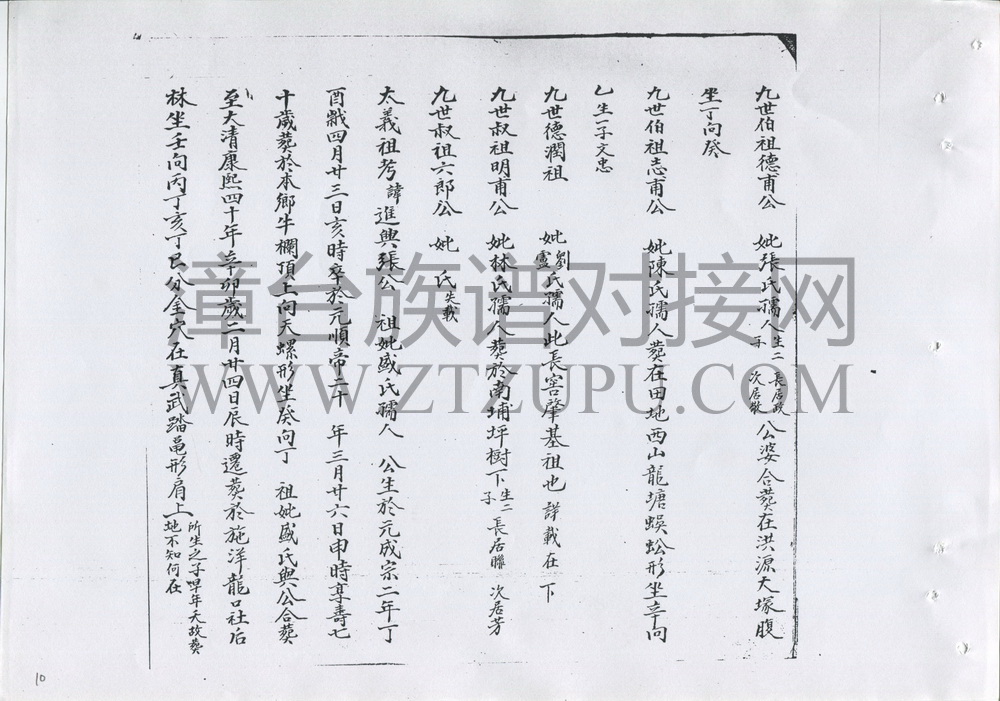 九世伯祖德甫公 妣張氏孺人生二子 長居政 次居敬 公婆合葬在洪源大塚腹
坐丁向癸
九世伯祖志甫公 妣陳氏孺人葬在田地西山龍塘蜈蚣形坐辛向
乙生一子文忠
九世德潤祖 妣劉盧氏孺人此長窖肇基祖也 詳載在下
九世叔祖明甫公 妣林氏孺人葬於南埔坪樹下生二子 長居聯 次居芳
九世叔祖六郎公 妣 氏失載
太義祖考諱進興張公 祖妣盛氏孺人 公生於元成宗二年丁
酉歲四月廿三日亥時卒於元順帝二十 年三月廿六日申時享壽七
十歲葬於本鄉牛欄頂上向天螺形坐癸向丁 祖妣盛氏與公合葬
至大清康熙四十年辛卯歲二月廿四日辰時遷葬於施洋龍口社后
林坐壬向丙丁亥丁巳分金穴在真武踏黽形肩上所生之子早年夭故葬地不知何在
章台族谱对接网
WWW.ZTZUPU.COM
10